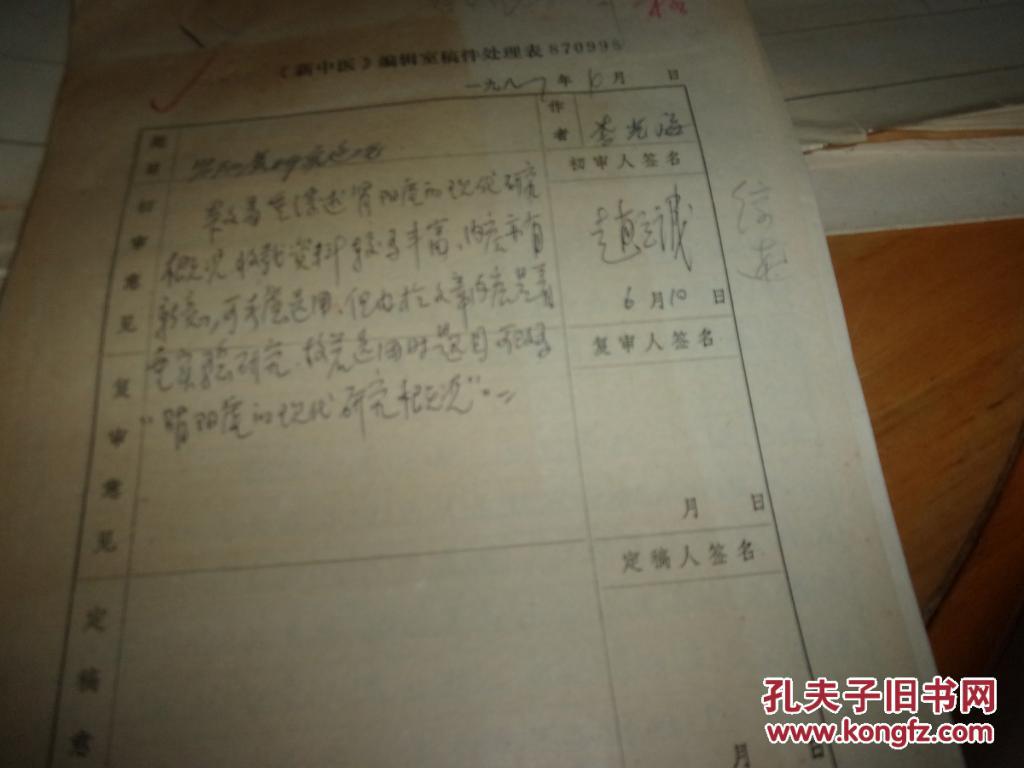 《新中医》编辑室稿件处理表870995
一九八7年6月 日
题目
作者
李光海
初审意见
初审人签名
本文着重综述肾阳虚的现代研究
概况收载资料较为丰富、内容亦有
新意,可考虑选用、但由于文章内容是着
重实验研究、故若选用时题目可改为
“肾阳虚的现代研究概况”。
6月10日
综述
复审意见
复审人签名
月 日
定稿人签名
定稿意
月 日
孔夫子旧书网
www.kongfz.com